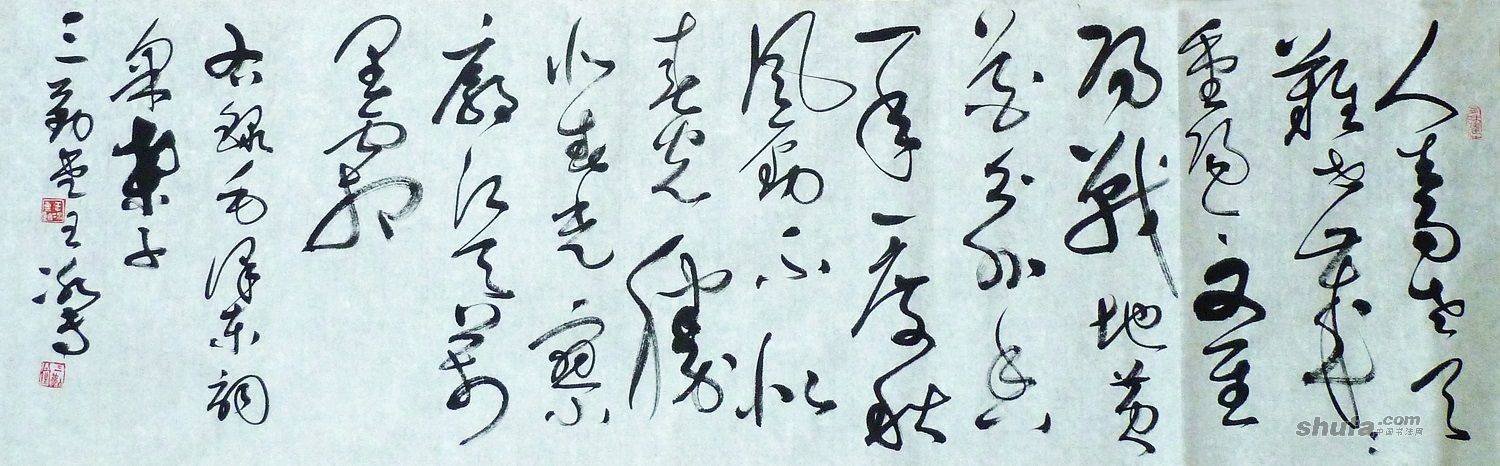 人生易老天
難老歲歲
重陽今又重
陽戰地黄
花分外香
一年一度秋
風勁不似
春光勝
似春光寥
廓江天萬
里霜
右録毛澤東詞
采桑子
三勤堂王
shufa.com
中国书法网